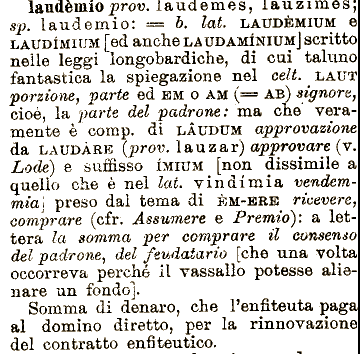 laudèmio prov. laudemes, lauzimes;
sp. laudemio: = b. lat. LAUDÈMIUM e
LAUDÍMIUM [ed anche LAUDAMÍNIUM] scritto
nelle leggi longobardiche, di cui taluno
fantastica la spiegazione nel celt. LAUT
porzione, parte ed EM o AM (= AB) signore,
cioè, la parte del padrone: ma che vera-
mente è comp. di LÀUDUM approvazione
da LAUDÀRE (prov. lauzar) approvare (v.
Lode) e suffisso ÍMIUM [non dissimile a
quello che è nel lat. vindímia vendem-
mia] preso dal tema di ÈM-ERE ricevere,
comprare (cfr. Assumere e Premio): a let-
tera la somma per comprare il consenso
del padrone, del feudatario [che una volta
occorreva perché il vassallo potesse alie-
nare un fondo].
Somma di denaro, che l'enfiteuta paga
al domino diretto, per la rinnovazione
del contratto enfiteutico.